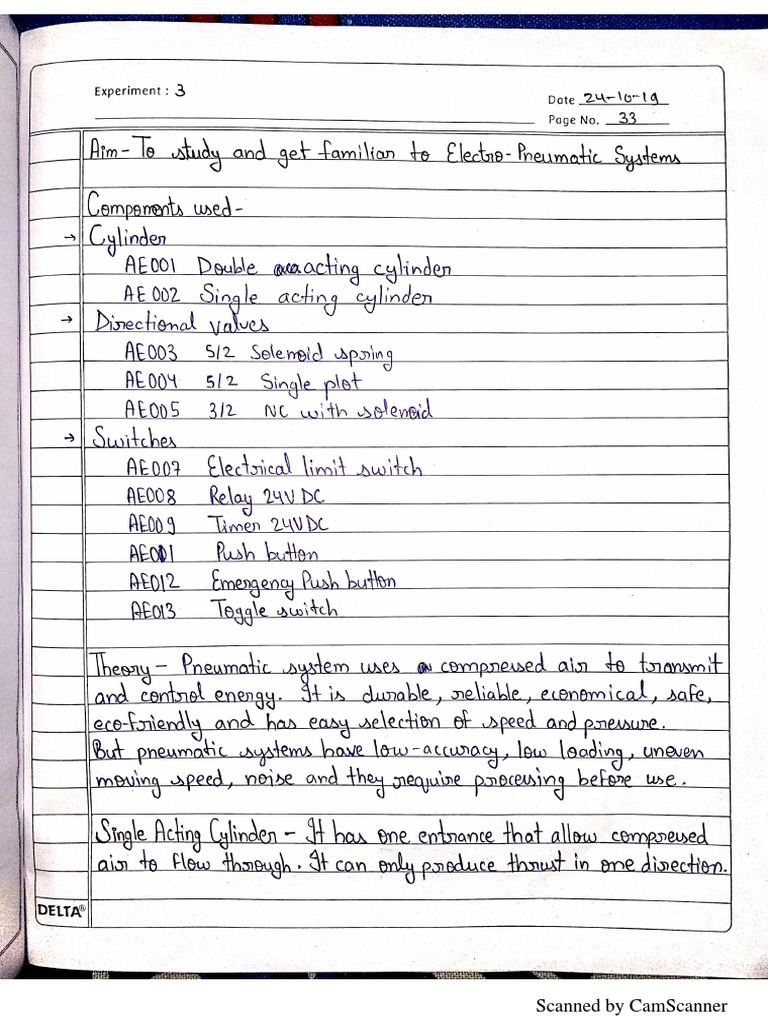 Experiment : 3
Date 24-10-19
Page No. 33
Aim - To study and get familiar to Electro-Pneumatic Systems
Components used -
→ Cylinder
AE001 Double acting cylinder
AE002 Single acting cylinder
→ Directional valves
AE003 5/2 Solenoid spring
AE004 5/2 Single plot
AE005 3/2 NC with solenoid
→ Switches
AE007 Electrical limit switch
AE008 Relay 24V DC
AE009 Timer 24VDC
Push button
AE012 Emergency Push button
AE013 Toggle switch
Theory - Pneumatic system uses compressed air to transmit
and control energy. It is durable, reliable, economical, safe,
eco-friendly and has easy selection of speed and pressure.
But pneumatic systems have low-accuracy, low loading, uneven
moving speed, noise and they require processing before use.
Single Acting Cylinder - It has one entrance that allow compressed
air to flow through. It can only produce thrust in one direction.
DELTA®
Scanned by CamScanner